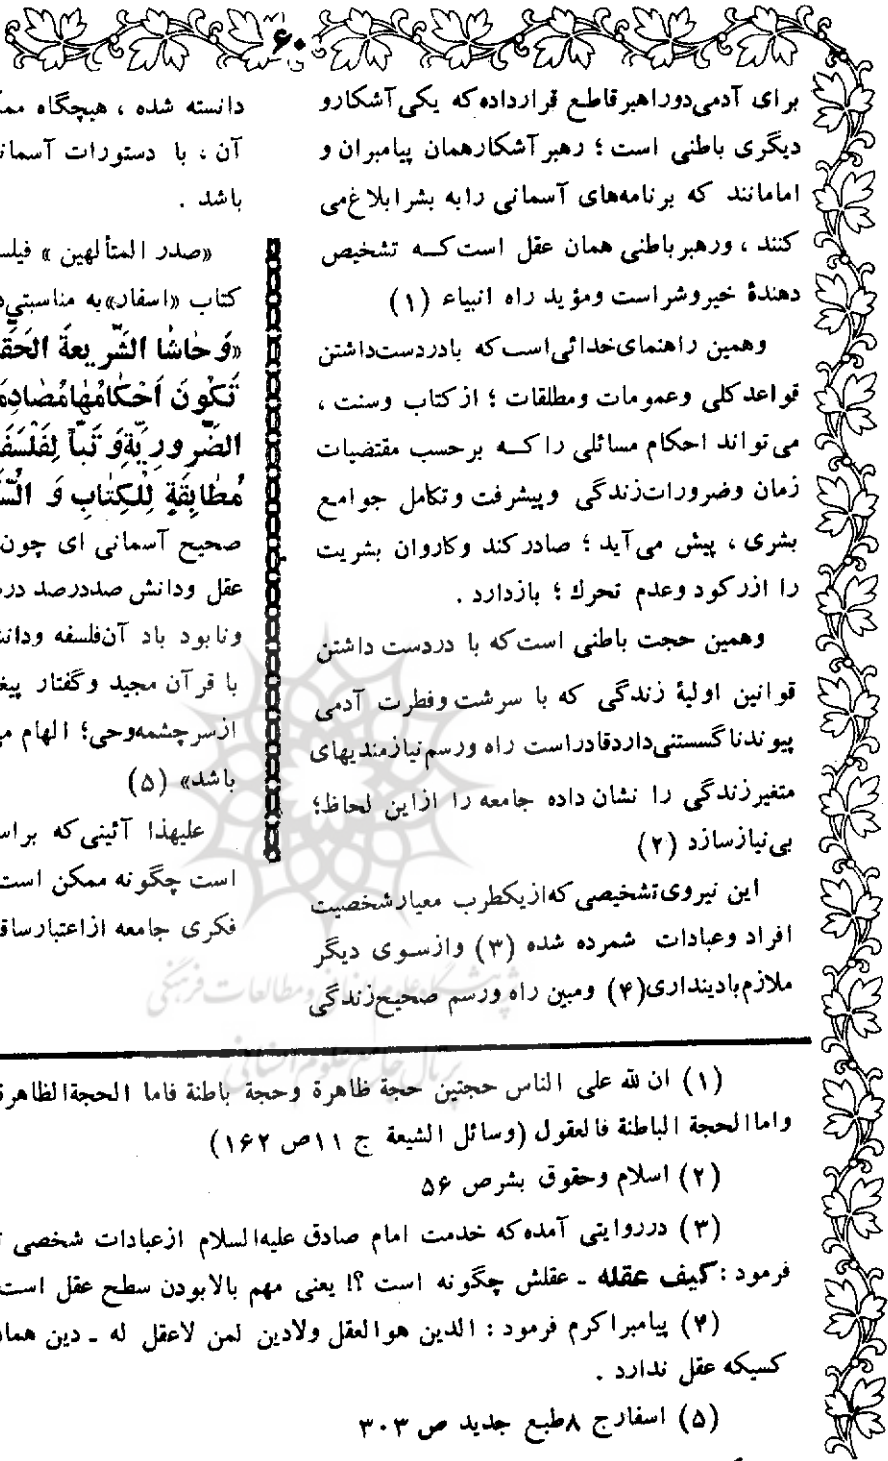 ۶۰
برای آدمی دوراهبر قاطع قرارداده که یکی آشکار و
دیگری باطنی است ؛ رهبر آشکار همان پیامبران و
امامانند که برنامه‌های آسمانی را به بشر ابلاغ می
کنند ، و رهبر باطنی همان عقل است کــه تشخیص
دهندهٔ خیر و شر است و مؤید راه انبیاء (۱)
وهمین راهنمای خدائی است که بادردست داشتن
قواعد کلی وعمومات ومطلقات ؛ از کتاب وسنت ،
می تواند احکام مسائلی را کــه برحسب مقتضیات
زمان وضرورات زندگی وپیشرفت وتکامل جوامع
بشری ، پیش می آید ؛ صادر کند و کاروان بشریت
را از رکود وعدم تحرك ؛ بازدارد .
وهمین حجت باطنی است که با دردست داشتن
قوانین اولیهٔ زندگی که با سرشت وفطرت آدمی
پیوند ناگسستنی دارد قادر است راه ورسم نیازمندیهای
متغیر زندگی را نشان داده جامعه را از این لحاظ ؛
بی نیاز سازد (۲)
این نیروی تشخیصی که از یکطرب معیار شخصیت
افراد وعبادات شمرده شده (۳) واز سوی دیگر
ملازم بادینداری (۴) ومبین راه ورسم صحیح زندگی
دانسته شده ، هیچگاه
آن ، با دستورات
باشد .
«صدر المتألهین »
کتاب «اسفار» به مناسبتی
«وَ حٰاشَا الشَّریعةَ
تَکُونَ اَحْکٰامُهٰا
الضَّروریَّةِ وَ تَبّاً
مُطٰابِقَةٍ لِلْکِتٰابِ وَ
صحیح آسمانی ای چون
عقل ودانش صددرصد
ونابود باد آن فلسفه
با قرآن مجید و گفتار
از سرچشمه وحی ؛ الهام
باشد» (۵)
علیهذا آئینی که
است چگونه ممکن است
فکری جامعه از اعتبار
پژوهشگاه علوم انسانی و مطالعات فرهنگی
پرتال جامع علوم انسانی
(۱) ان لله علی الناس حجتین حجة ظاهرة وحجة باطنة فاما الحجة الظاهرة
واما الحجة الباطنة فالعقول (وسائل الشیعة ج ۱۱ ص ۱۶۲)
(۲) اسلام وحقوق بشر ص ۵۶
(۳) در روایتی آمده که خدمت امام صادق علیه السلام از عبادات شخصی
فرمود : کیف عقله ـ عقلش چگونه است ؟! یعنی مهم بالا بودن سطح عقل است
(۴) پیامبر اکرم فرمود : الدین هو العقل ولادین لمن لاعقل له ـ دین
کسیکه عقل ندارد .
(۵) اسفار ج ۸ طبع جدید ص ۳۰۳